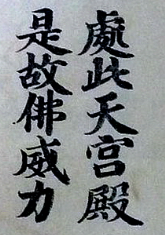 處此天宮殿
是故佛威力